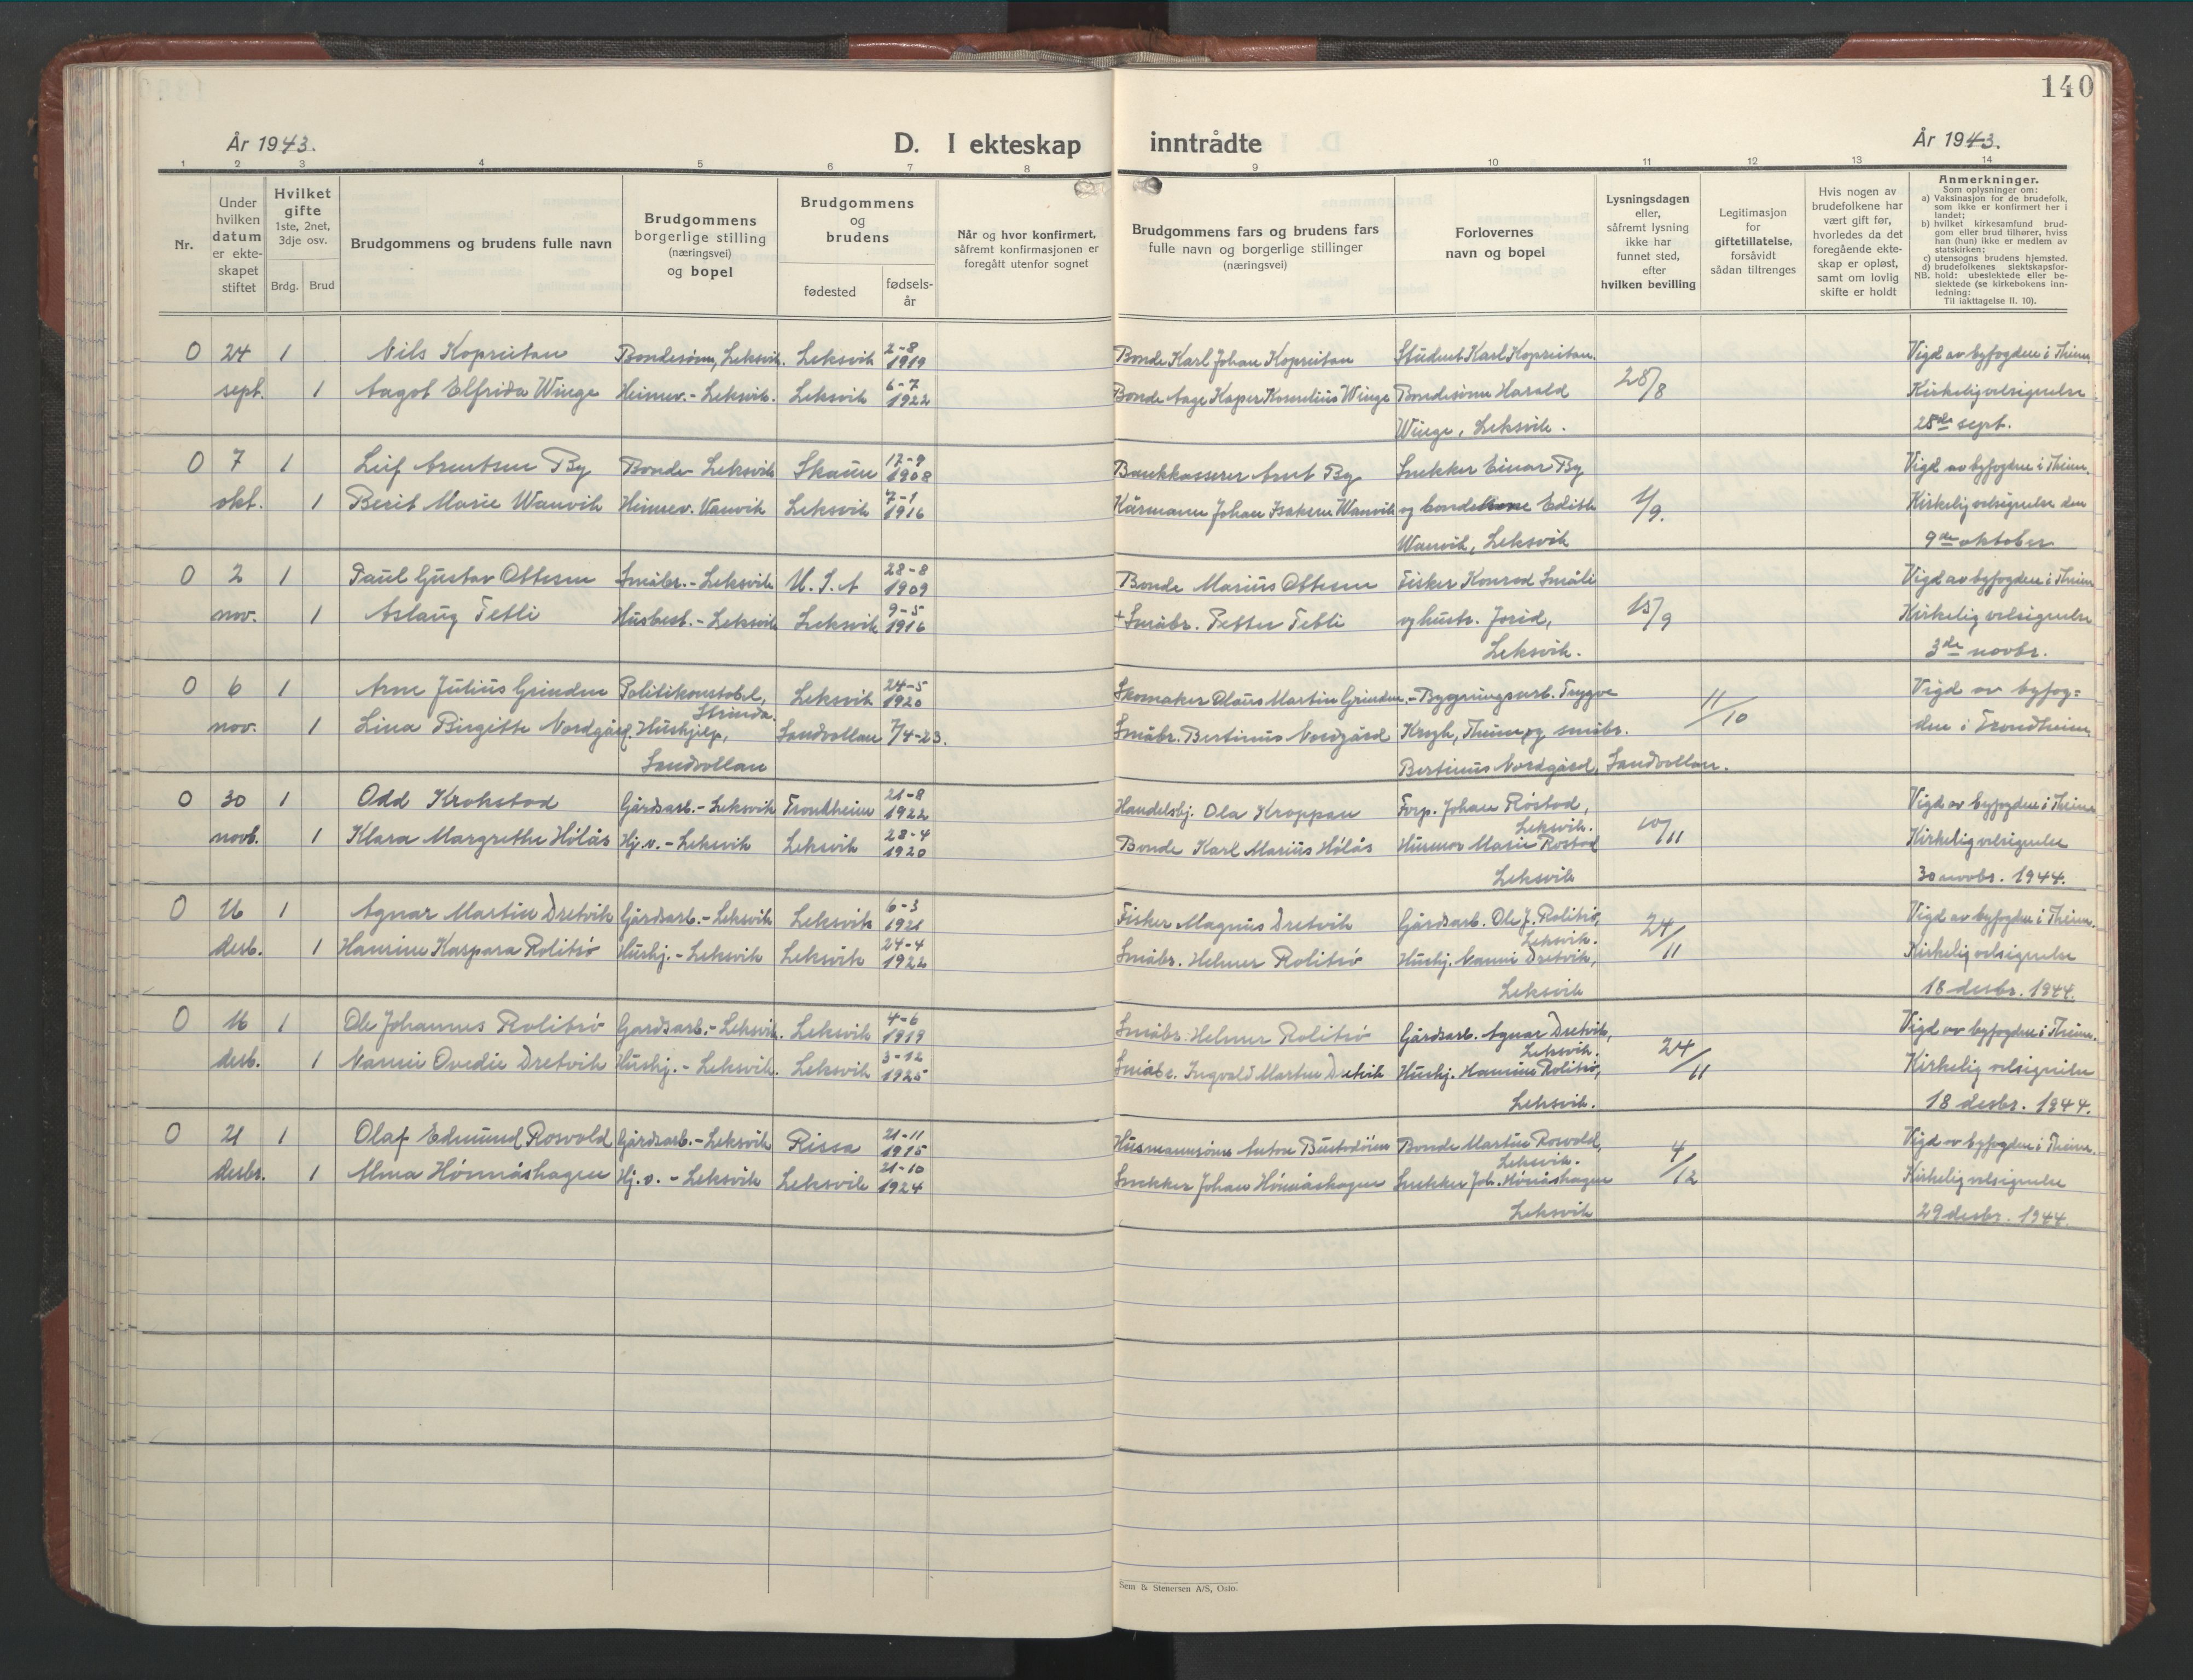 140
År 1943.
D. I ekteskap inntrådte
År 1943.
1 2 3 4 5 6 7 8 9 10 11 12 13 14
Nr.
Under hvilken datum er ekteskapet stiftet
Hvilket gifte 1ste, 2net, 3dje osv.
Brdg. Brud
Brudgommens og brudens fulle navn
Brudgommens borgerlige stilling (næringsvei) og bopel
Brudgommens og brudens
fødested
fødselsår
Når og hvor konfirmert, såfremt konfirmasjonen er foregått utenfor sognet
Brudgommens fars og brudens fars fulle navn og borgerlige stillinger (næringsvei)
Forlovernes navn og bopel
Lysningsdagen eller, såfremt lysning ikke har funnet sted, efter hvilken bevilling
Legitimasjon for giftetillatelse, forsåvidt sådan tiltrenges
Hvis nogen av brudefolkene har vært gift før, hvorledes da det foregående ekteskap er opløst, samt om lovlig skifte er holdt
Anmerkninger.
Som oplysninger om:
a) Vaksinasjon for de brudefolk, som ikke er konfirmert her i landet;
b) hvilket kirkesamfund brudgom eller brud tilhører, hviss han (hun) ikke er medlem av statskirken;
c) utensogns brudens hjemsted.
d) brudefolkenes slektskapsforhold: ubeslektede eller beslektede (se kirkebokens innledning:
NB. Til iakttagelse II. 10).
0 24 1 Nils Kopreitan Bondesønn, Leksvik. Leksvik 2-8 1919 Bonde Karl Johan Kopreitan Student Karl Kopreitan. Vigd av byfogden i Thrim
sept. 1 Aagot Elfrida Winge Heimev.- Leksvik. Leksvik 6-7 1922 Bonde Aage Kasper Kornelius Winge Bondesønn Harald 28/8 Kirkelig velsignelse
Winge, Leksvik. 28de sept.
0 7 1 Leif Arntsen By Bonde - Leksvik Skaun 17-9 1908 Bankkasserer Arnt By Snekker Einar By Vigd av byfogden i Thrim.
okt. 1 Berit Marie Wanvik Heimev. Vanvik Leksvik 7-1 1916 Kårmann Johan Isaksen Wanvik og bonde Edith 1/9. Kirkelig velsignelse den
Wanvik, Leksvik 9de oktober
0 2 1 Paul Gustav Ottesen Småbr.- Leksvik U.S.A 28-8 1909 Bonde Marius Ottesen Fisker Konrad Småli Vigd av byfogden i Thrim
nov. 1 Aslaug Tetli Husbest.- Leksvik Leksvik 9-5 1916 + Småbr. Petter Tetli og hustr. Jorid, 15/9 Kirkelig velsignelse
Leksvik. 3de novbr.
0 6 1 Arne Julius Grinden Politikonstabel, Strinda. Leksvik 24-5 1920 Skomaker Olaus Martin Grinden.- Bygningsarb. Trygve 11/10 Vigd av byfog=
nov. 1 Lina Birgitte Nordgård. Hushjelp, Sandvollan 7/4-23. Småbr. Bertinus Nordgård Krogh, Thrim og småbr. den i Trondheim
Sandvollan Bertinus Nordgård, Sandvollan.
0 30 1 Odd Krokstad Gårdsarb.- Leksvik Trondheim 21-8 1922 Handelsbj. Ola Kroppan Forp. Johan Røstad, Leksvik. Vigd av byfogden i Thrim
novb. 1 Klara Margrethe Hólås Hj.v.- Leksvik Leksvik 28-4 1920 Bonde Karl Marius Hólås Husmor Marie Rostad 10/11 Kirkelig velsignelse
Leksvik 30 novbr. 1944.
0 16 1 Agnar Martin Dretvik Gårdsarb.- Leksvik Leksvik 6-3 1921 Fisker Magnus Dretvik Gårdsarb. Ole J. Rolitsø, Leksvik. Vigd av byfogden i Thrim.
desb. 1 Hanrine Kaspara Rolitsø Hushj.- Leksvik Leksvik 24-4 1922 Småbr. Helmer Rolitsø Hushj. Nanni Dretvik, 24/11 Kirkelig velsignelse
Leksvik 18 desbr. 1944.
0 16 1 Ole Johannes Rolitsø Gardsarb.- Leksvik. Leksvik 4-6 1919 Småbr. Helmer Rolitsø Gårdsarb. Agnar Dretvik, Leksvik. Vigd av byfogden i Thrim.
desb. 1 Nanni Ovedie Dretvik Hushj.- Leksvik. Leksvik 3-12 1925 Småbr. Ingvald Martin Dretvik Hushj. Hanrine Rolitsø, 24/11 Kirkelig velsignelse
Leksvik. 18 desbr. 1944.
0 21 1 Olaf Edmund Rosvold Gårdsarb.- Leksvik Rissa 21-11 1915 Husmannsønn Anton Bustadsveen Bonde Martin Rosvold, Leksvik. Vigd av byfogden i Thrim.
desbr. 1 Alma Hømmåshagen Hj.v.- Leksvik Leksvik 21-10 1924 Snekker Johan Hømmåshagen Snekker Joh. Hømmåshagen 4/12 Kirkelig velsignelse
Leksvik 29 desbr. 1944.
Sem & Stenersen A/S, Oslo.